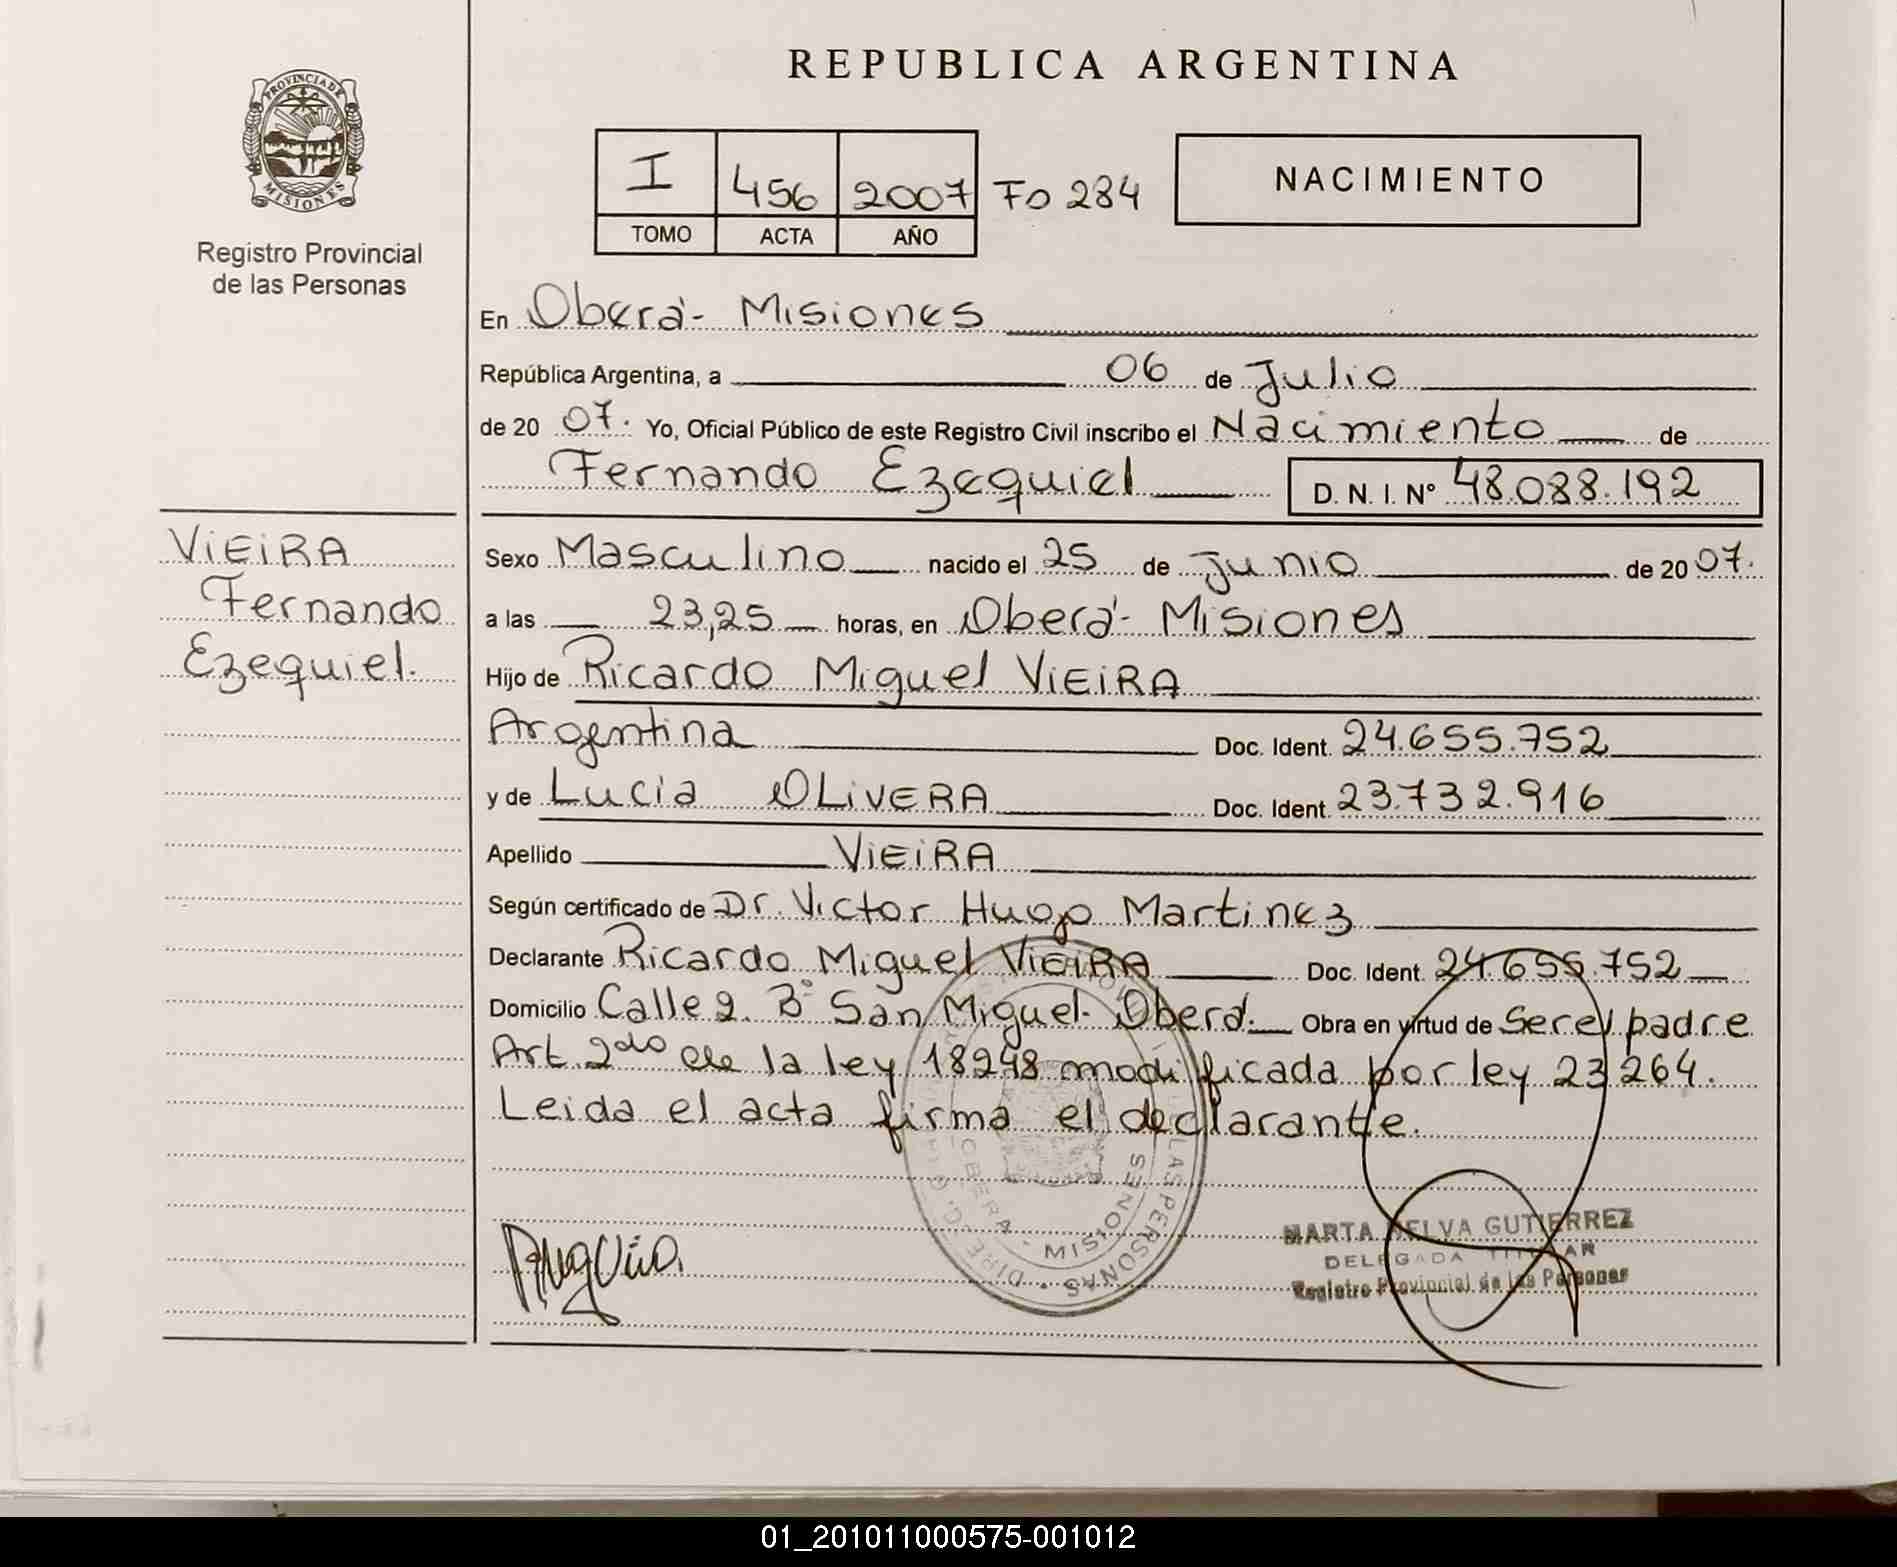 REPUBLICA ARGENTINA
PROVINCIA DE
MISIONES
Registro Provincial
de las Personas
I 456 2007 Fo 284
TOMO ACTA AÑO
NACIMIENTO
En Oberá - Misiones
República Argentina, a 06 de Julio
de 20 07. Yo, Oficial Público de este Registro Civil inscribo el Nacimiento de
Fernando Ezequiel D. N. I. Nº 48.088.192
VIEIRA
Fernando
Ezequiel.
Sexo Masculino nacido el 25 de Junio de 20 07.
a las 23,25 horas, en Oberá - Misiones
Hijo de Ricardo Miguel VIEIRA
Argentina Doc. Ident. 24.655.752
y de Lucia OLIVERA Doc. Ident. 23.732.916
Apellido VIEIRA
Según certificado de Dr. Victor Hugo Martinez
Declarante Ricardo Miguel VIEIRA Doc. Ident. 24.655.752
Domicilio Calle 2. Bº San Miguel - Oberá. Obra en virtud de ser el padre
Art. 2do de la ley 18248 modificada por ley 23264.
Leida el acta firma el declarante.
LAS PERSONAS
OBERA - MISIONES
MARTA NELVA GUTIERREZ
DELEGADA TITULAR
Registro Provincial de las Personas
01_201011000575-001012